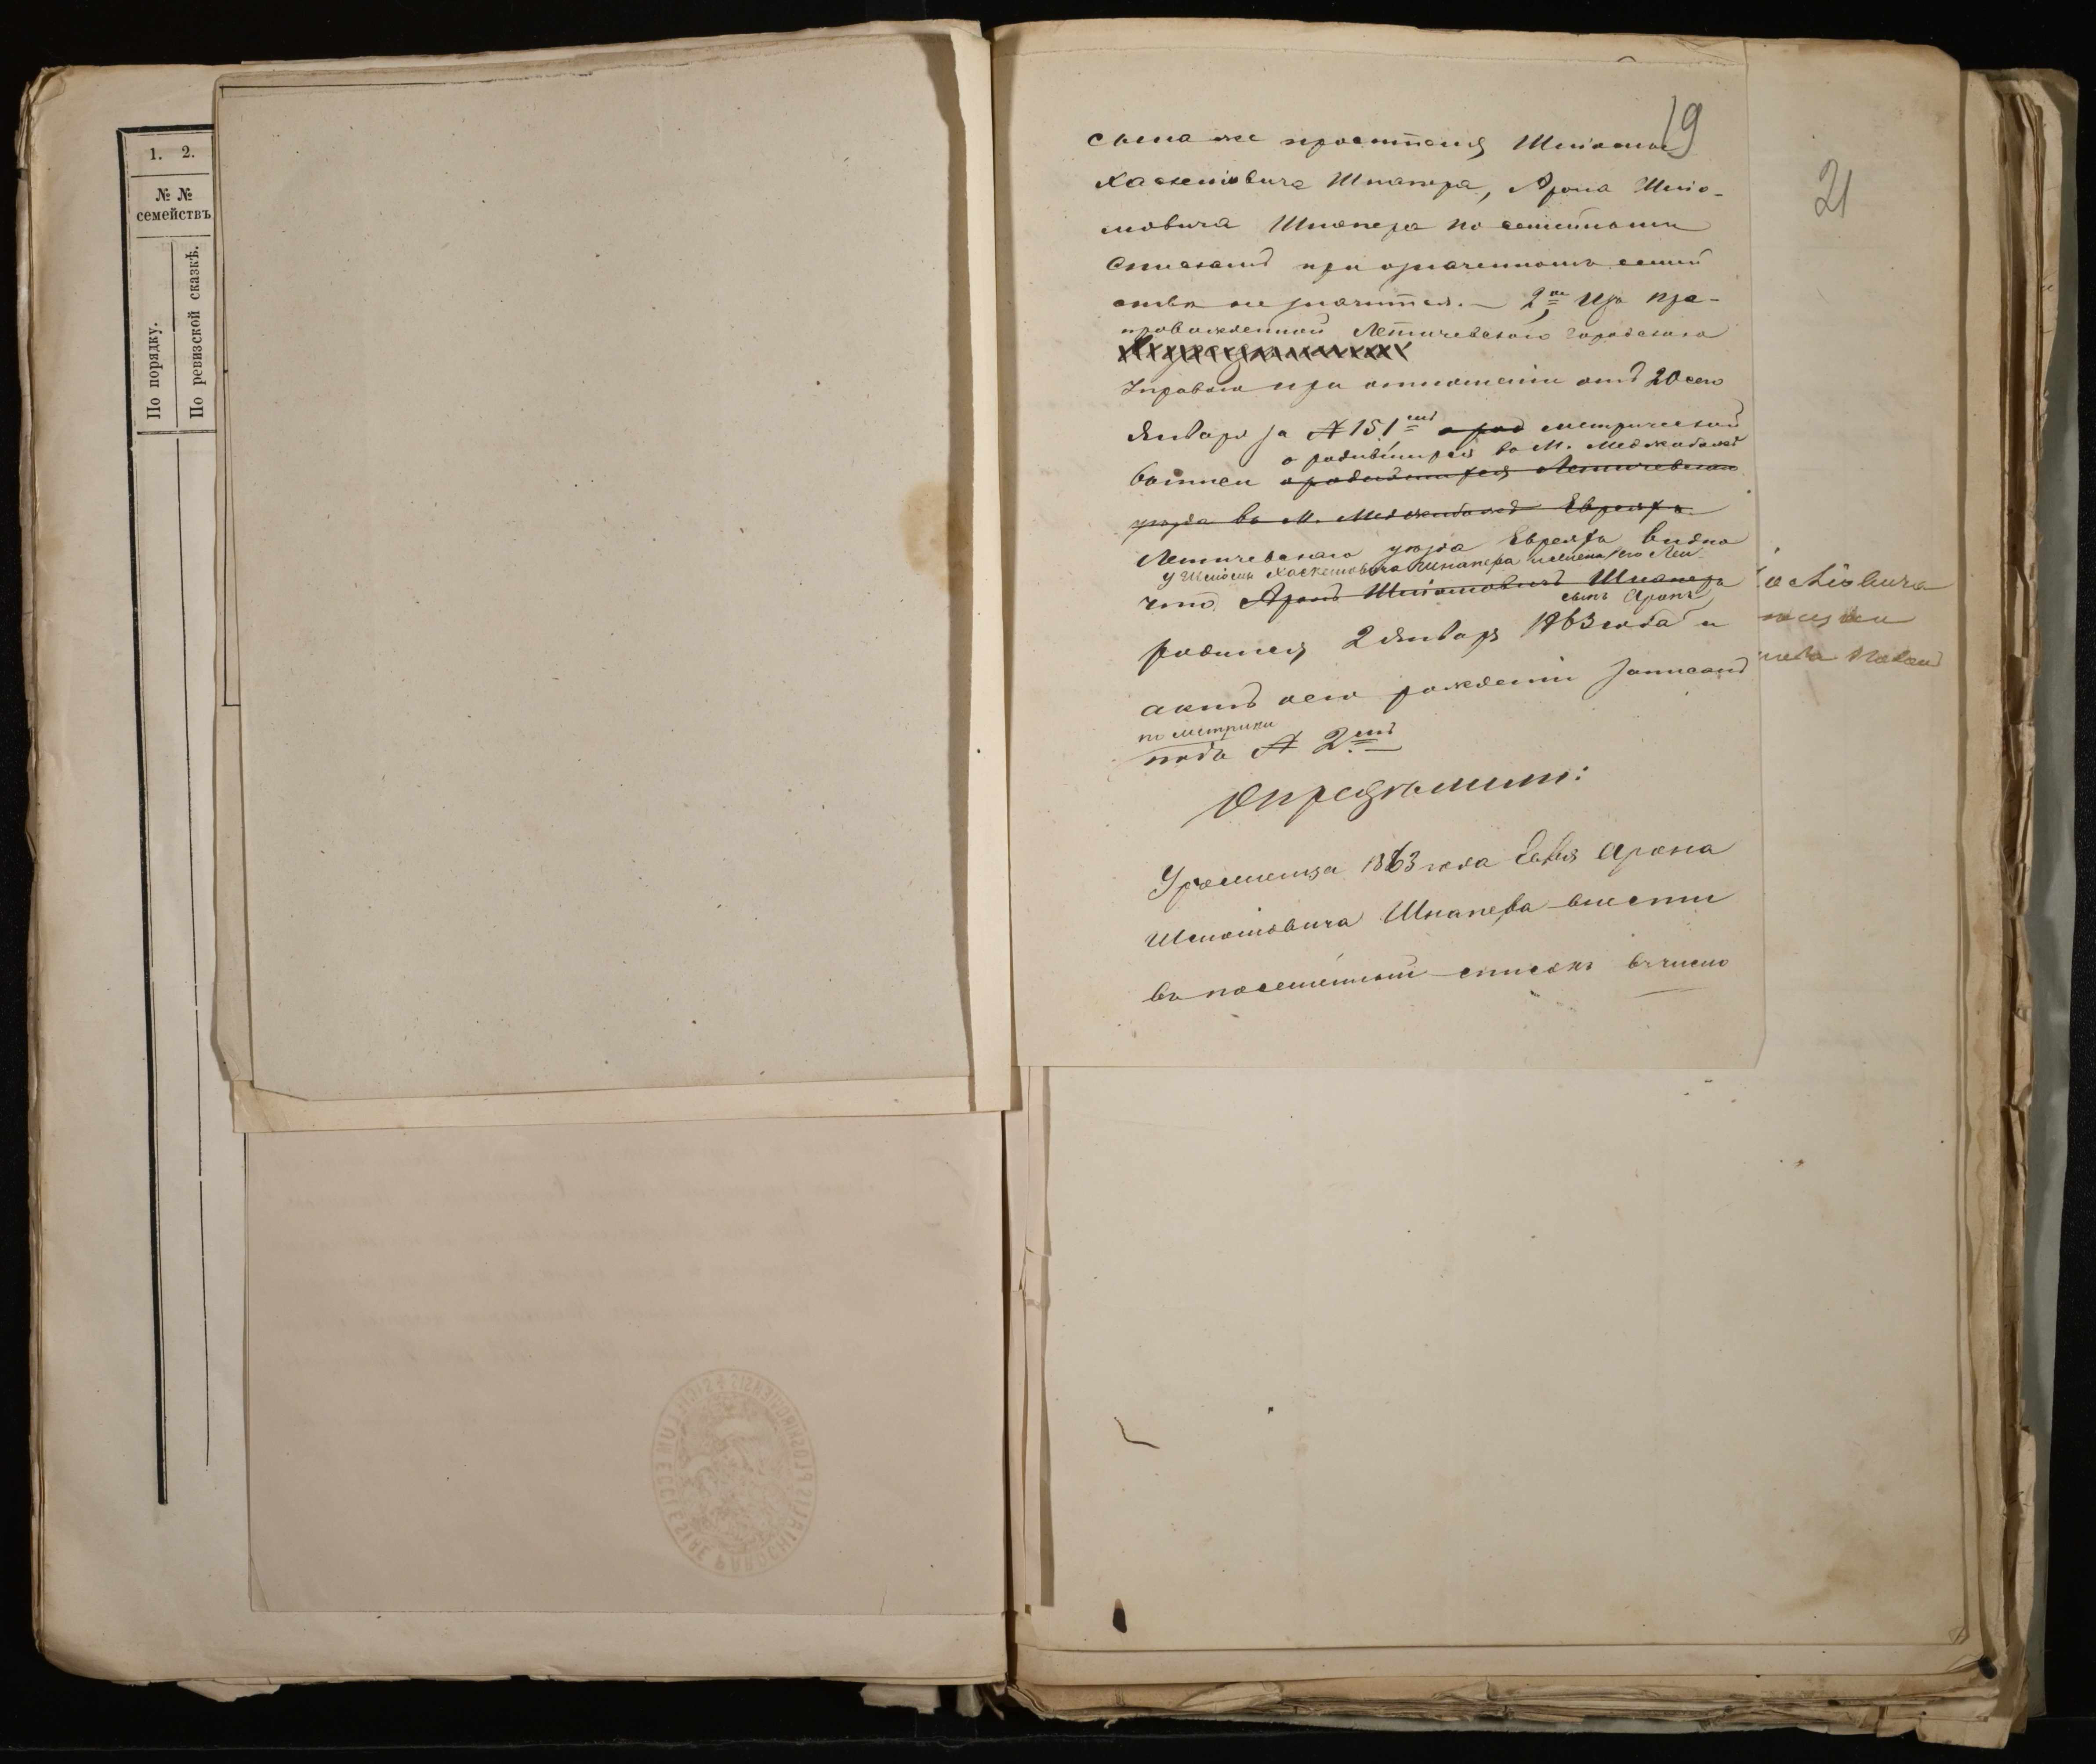 1. 2.
№ №
семействъ
По порядку.
По ревизской сказкѣ.
19
21
сына же просителя Шліомы
Хаскелiовича Шнапера, Арона Шлiо-
мовича Шнапера по семейнымъ
Спискамъ при означенномъ семей
ствѣ не значится. — 2, Изъ пре-
провожденной Летичевскою городскою
Управою при отношеніи отъ 20 сего
Января за № 151 о род метрической
о родившихся въ М. Меджибожѣ
выписи о родившихся Летичевскаго
уѣзда въ М. Меджибожѣ Евреяхъ
Летичевскаго уѣзда Евреяхъ видно
у Шліомы Хаскелiовича Шнапера и жены его Леи
что Аронъ Шліомовичъ Шнаперъ
сынъ Аронъ
родился 2 Января 1863 года и
актъ о его рожденіи записанъ
по метрики
подъ № 2
Опредѣлили:
Уроженца 1863 года Еврея Арона
Шліомовича Шнапера внести
въ посемейный списокъ въ число